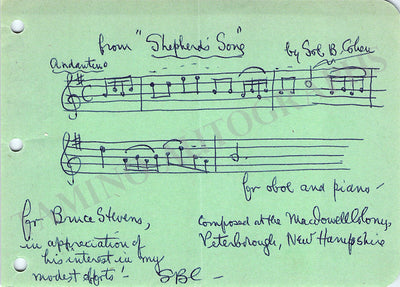 from "Shepherd's Song"
Andantino
by Sol B. Cohen
for oboe and piano -
for Bruce Stevens,
in appreciation of
his interest in my
modest efforts! -
SBC -
Composed at the MacDowell Colony,
Peterborough, New Hampshire
TAMINO AUTOGRAPHS